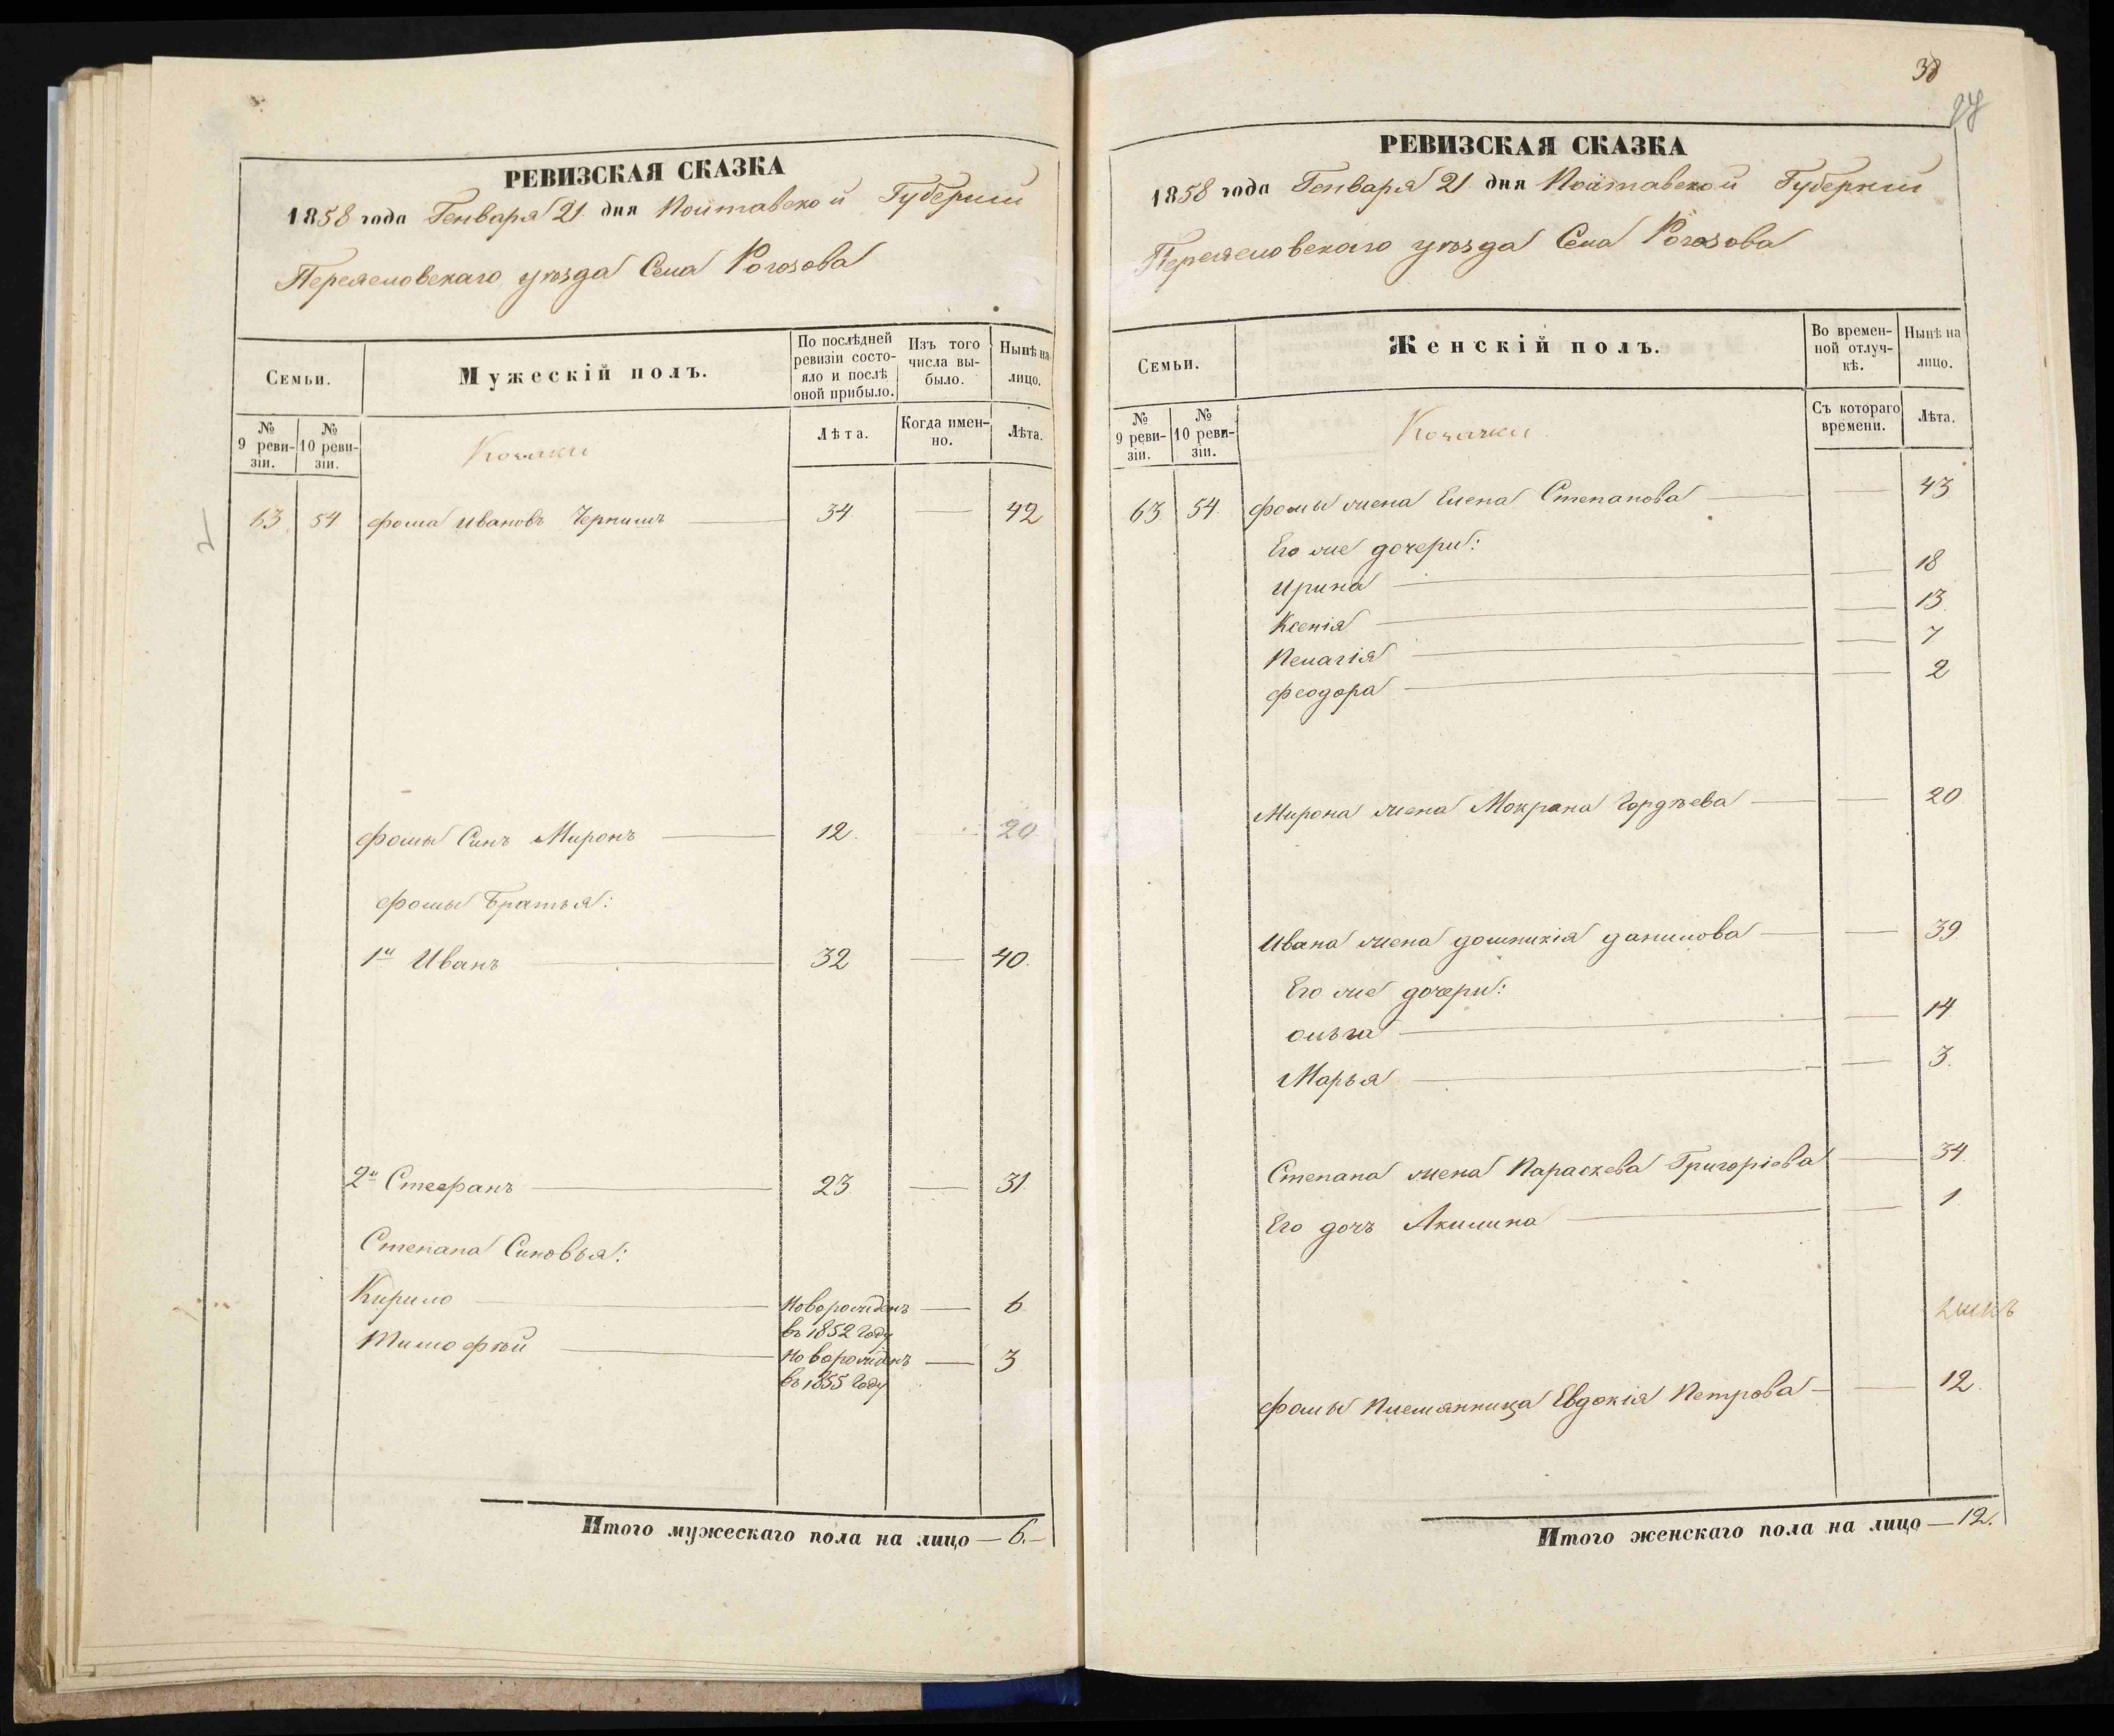 РЕВИЗСКАЯ СКАЗКА
1858 года Генваря 21 дня Полтавской Губернии
Переяславскаго уѣзда Села Рогозова
Семьи.
Мужескій полъ.
По послѣдней ревизіи состо-
яло и послѣ
оной прибыло.
Изъ того
числа вы-
было.
Нынѣ на
лицо.
№
9 реви-
зіи.
№
10 реви-
зіи.
Козаки
Лѣта.
Когда имен-
но.
Лѣта.
63 54 Фома Ивановъ Чернишъ 34 — 42
Фомы Синъ Миронъ 12. 20
Фомы Братья:
1й Иванъ 32 — 40.
2й Стефанъ 23 — 31.
Степана Синовья:
Кирило Новорожденъ — 6
въ 1852 Году
Тимофѣй Новорожденъ — 3
въ 1855 Году
Итого мужескаго пола на лицо — 6. —
38
РЕВИЗСКАЯ СКАЗКА
1858 года Генваря 21 дня Полтавской Губернии
Переяславскаго уѣзда Села Рогозова
Семьи.
Женскій полъ.
Во времен-
ной отлуч-
кѣ.
Нынѣ на
лицо.
№
9 реви-
зіи.
№
10 реви-
зіи.
Козачки
Съ котораго
времени.
Лѣта.
63. 54. Фомы жена Елена Степанова — 43
Его же дочери:
Ирина — 18
Ксенія — 13
Пелагія — 7
Феодора — 2
Мирона жена Мокрана Гордѣева — 20
Ивана жена домникія данилова — 39
Его же дочери:
ольга — 14
Марья — 3.
Степана жена Параскева Григоріева — 34
Его дочь Акилина — 1
Фомы Племянница Евдокія Петрова — 12.
Итого женскаго пола на лицо — 12.